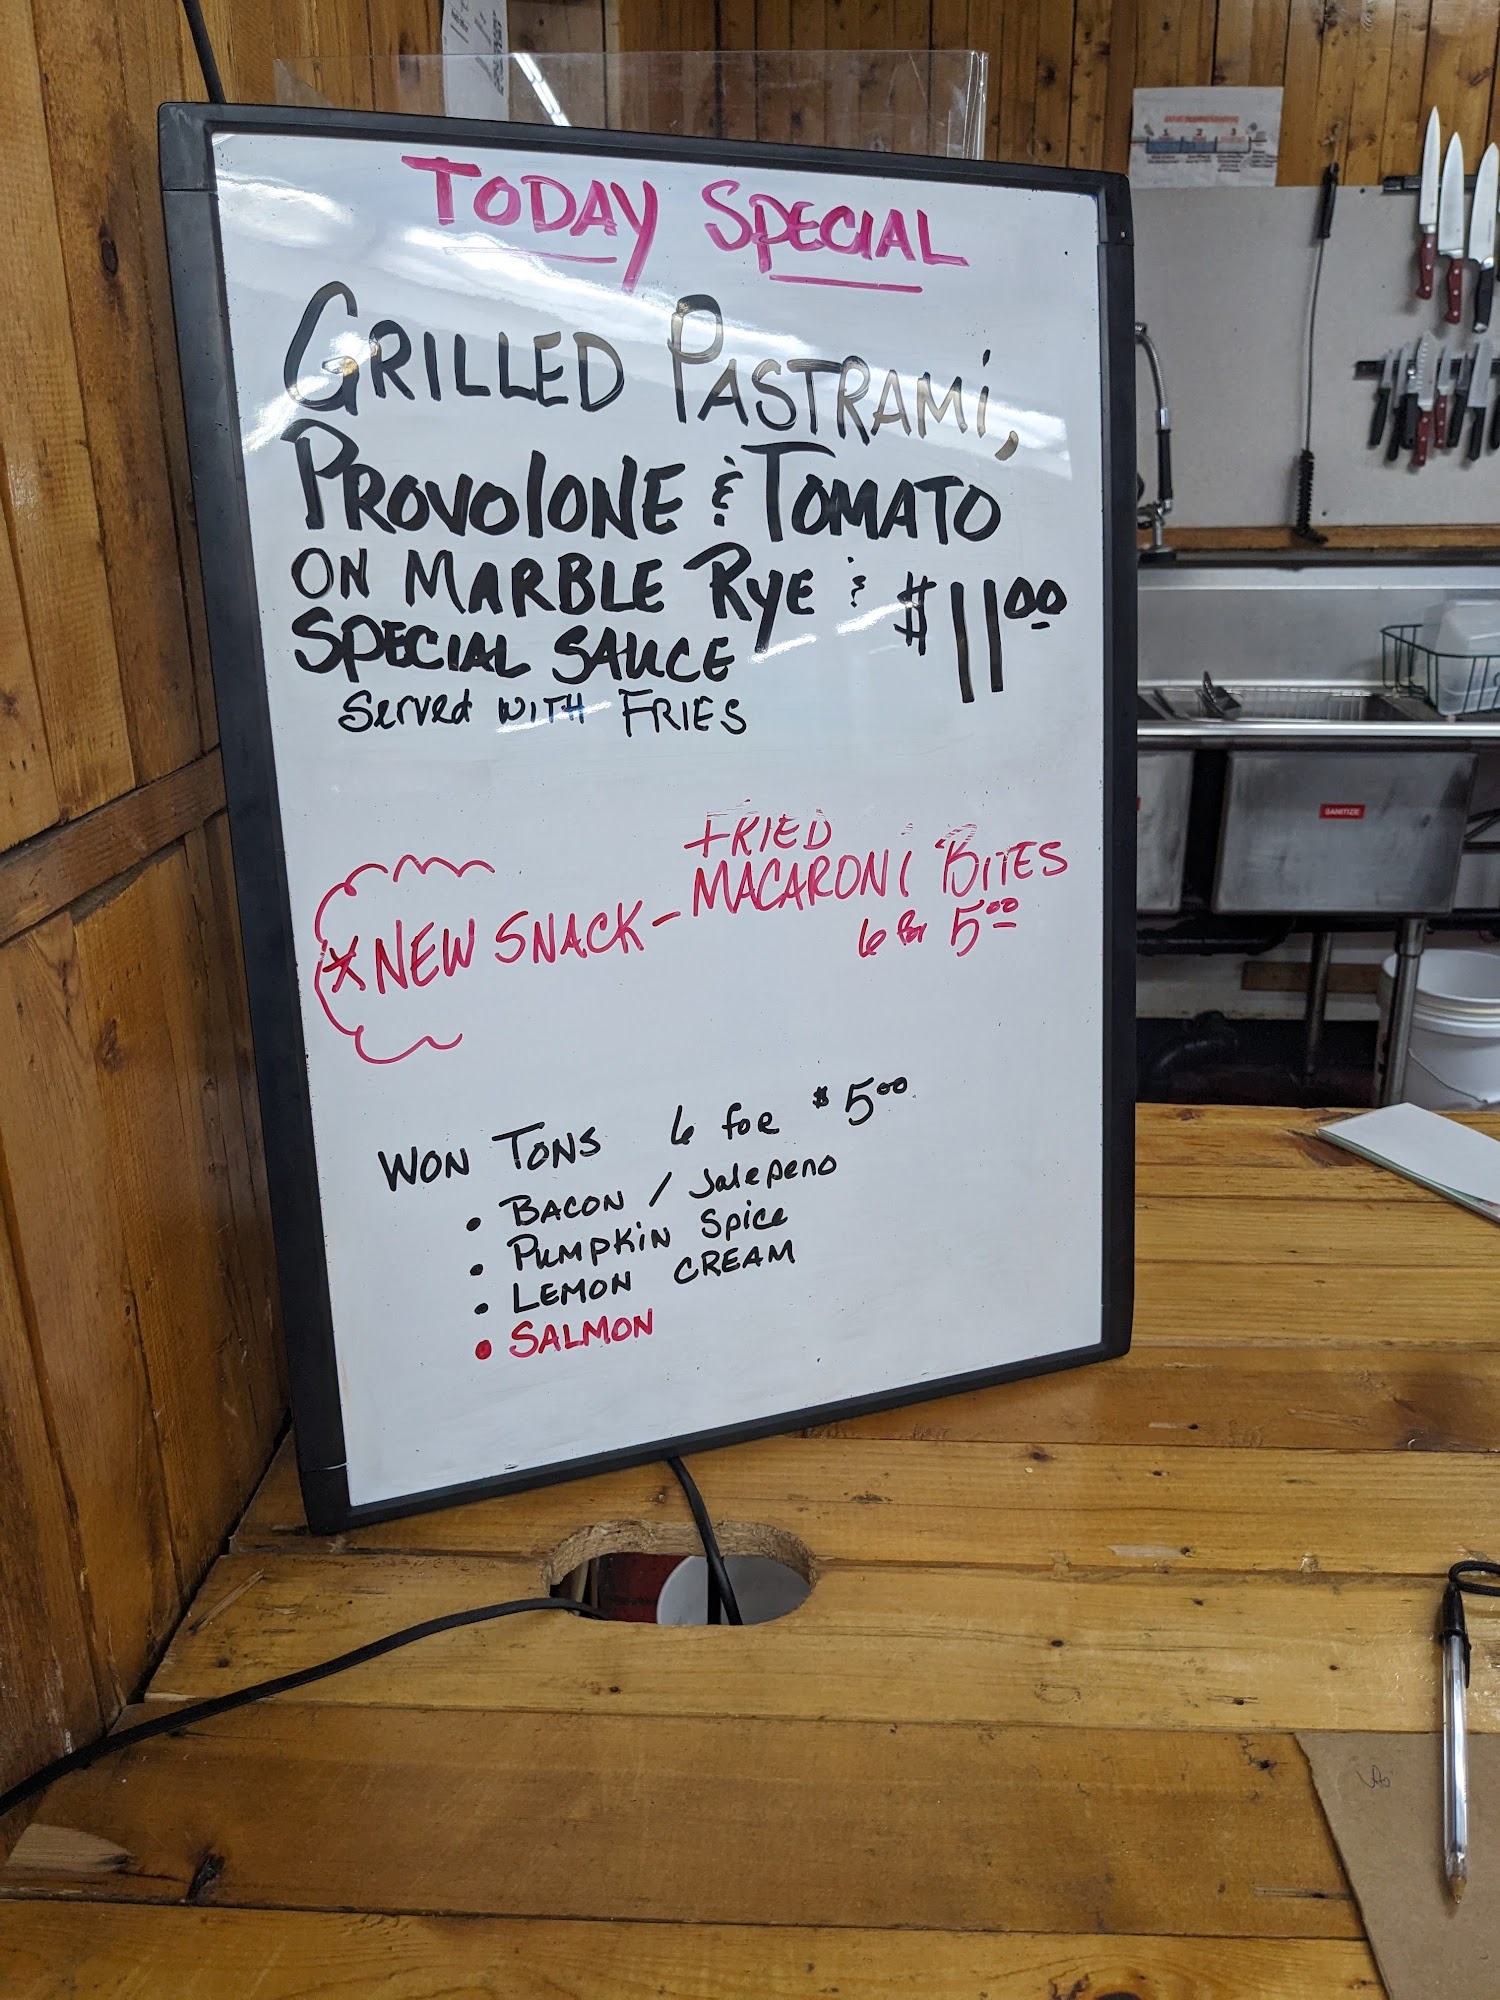 TODAY SPECIAL
GRILLED PASTRAMi,
PROVOlONE & TOMATO
ON MARBLE RyE &
SPECIAL SAUCE
$11.00
Served WITH FRIES
FRIED
MACARONi BiTES
* NEW SNACK -
6 for 5.00
WON TONS 6 foR $5.00
• BACON / Jalepeno
• PUMPKiN Spice
• LEMON CREAM
• SALMON
SANITIZE